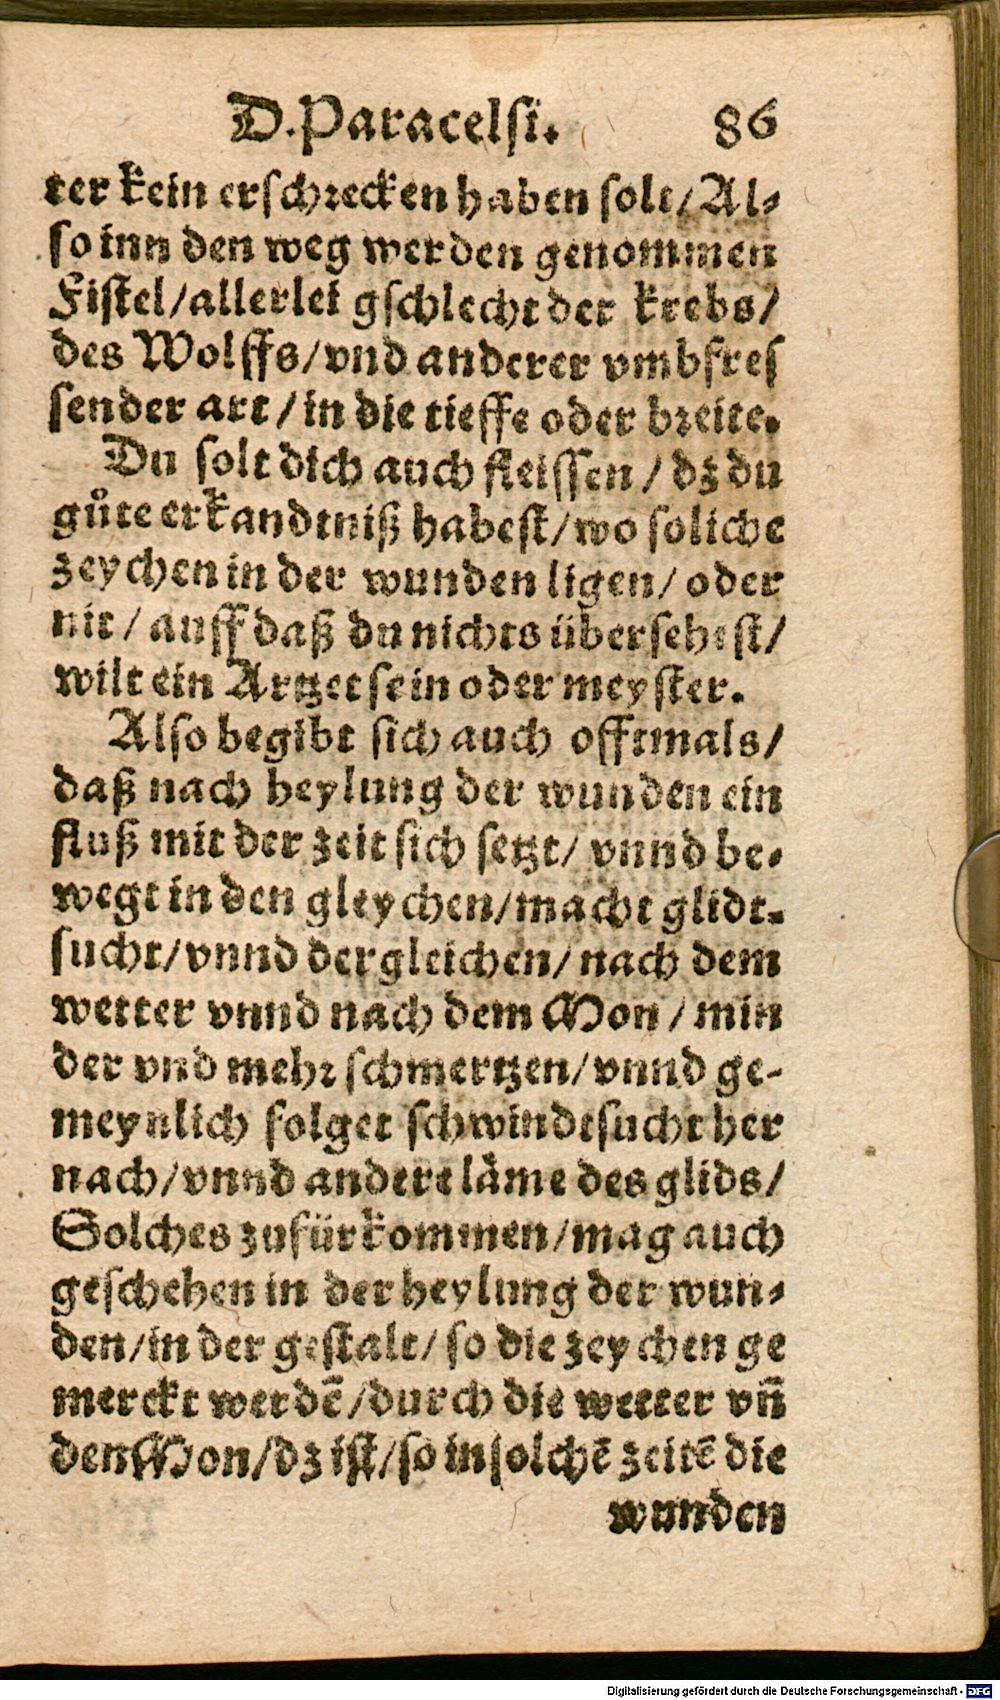 D. Paracelsi. 86
ter kein erschrecken haben solt / Al-
so inn den weg werden genommen
Fistel / allerlei gschlecht der krebs /
des Wolffs / vnd anderer vmbfres
sender art / in die tieffe oder breite.
Du solt dich auch fleissen / dz du
gůte erkandtniß habest / wo soliche
zeychen in der wunden ligen / oder
nit / auff daß du nichts übersehest /
wilt ein Artzet sein oder meyster.
Also begibt sich auch offtmals /
daß nach heylung der wunden ein
fluß mit der zeit sich setzt / vnnd be-
wegt in den gleychen / macht glidt-
sucht / vnnd dergleichen / nach dem
wetter vnnd nach dem Mon / min
der vnd mehr schmertzen / vnnd ge-
meynlich folget schwindtsucht her
nach / vnnd andere läme des glids /
Solches zufürkommen / mag auch
geschehen in der heylung der wun-
den / in der gestalt / so die zeychen ge
merckt werdē / durch die wetter vn̄
den Mon / dz ist / so in solchē zeitē die
wunden
Digitalisierung gefördert durch die Deutsche Forschungsgemeinschaft - DFG